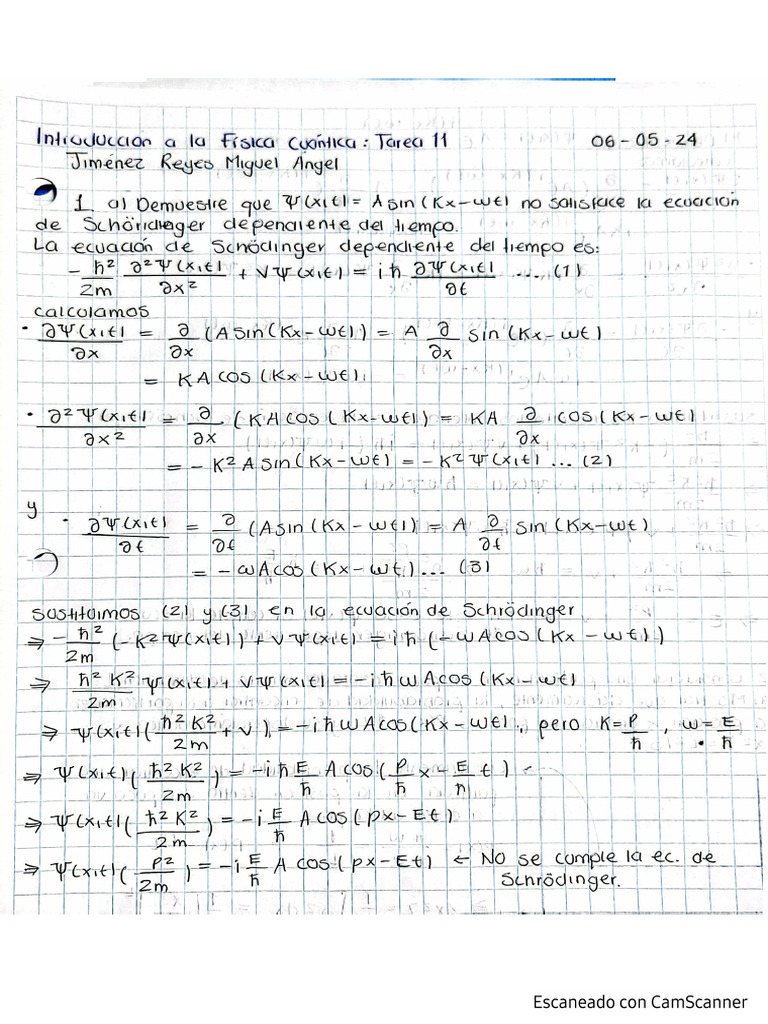 Introducción a la Física Cuántica: Tarea 11 06-05-24
Jiménez Reyes Miguel Angel
1. a) Demuestre que Ψ(x,t) = A sin(Kx-ωt) no satisface la ecuación
de Schöridinger dependiente del tiempo.
La ecuación de Schödinger dependiente del tiempo es:
-ħ²/2m ∂²Ψ(x,t)/∂x² + VΨ(x,t) = iħ ∂Ψ(x,t)/∂t .... (1)
calculamos
• ∂Ψ(x,t)/∂x = ∂/∂x (A sin(Kx-ωt)) = A ∂/∂x sin(Kx-ωt)
= KA cos(Kx-ωt).
• ∂²Ψ(x,t)/∂x² = ∂/∂x (KA cos(Kx-ωt)) = KA ∂/∂x cos(Kx-ωt)
= -K² A sin(Kx-ωt) = -K² Ψ(x,t) ... (2)
y
• ∂Ψ(x,t)/∂t = ∂/∂t (A sin(Kx-ωt)) = A ∂/∂t sin(Kx-ωt)
= -ωA cos(Kx-ωt) ... (3)
Sustituimos (2) y (3) en la ecuación de Schrödinger
⇒ -ħ²/2m (-K²Ψ(x,t)) + VΨ(x,t) = iħ (-ωA cos(Kx-ωt))
⇒ ħ²K²/2m Ψ(x,t) + VΨ(x,t) = -iħωA cos(Kx-ωt)
⇒ Ψ(x,t) (ħ²K²/2m + V) = -iħωA cos(Kx-ωt), pero K = P/ħ , ω = E/ħ
⇒ Ψ(x,t) (ħ²K²/2m) = -iħ E/ħ A cos(P/ħ x - E/ħ t)
⇒ Ψ(x,t) (ħ²K²/2m) = -i E/ħ A cos(px-Et)
⇒ Ψ(x,t) (P²/2m) = -i E/ħ A cos(px-Et) ← No se cumple la ec. de
Schrödinger.
Escaneado con CamScanner